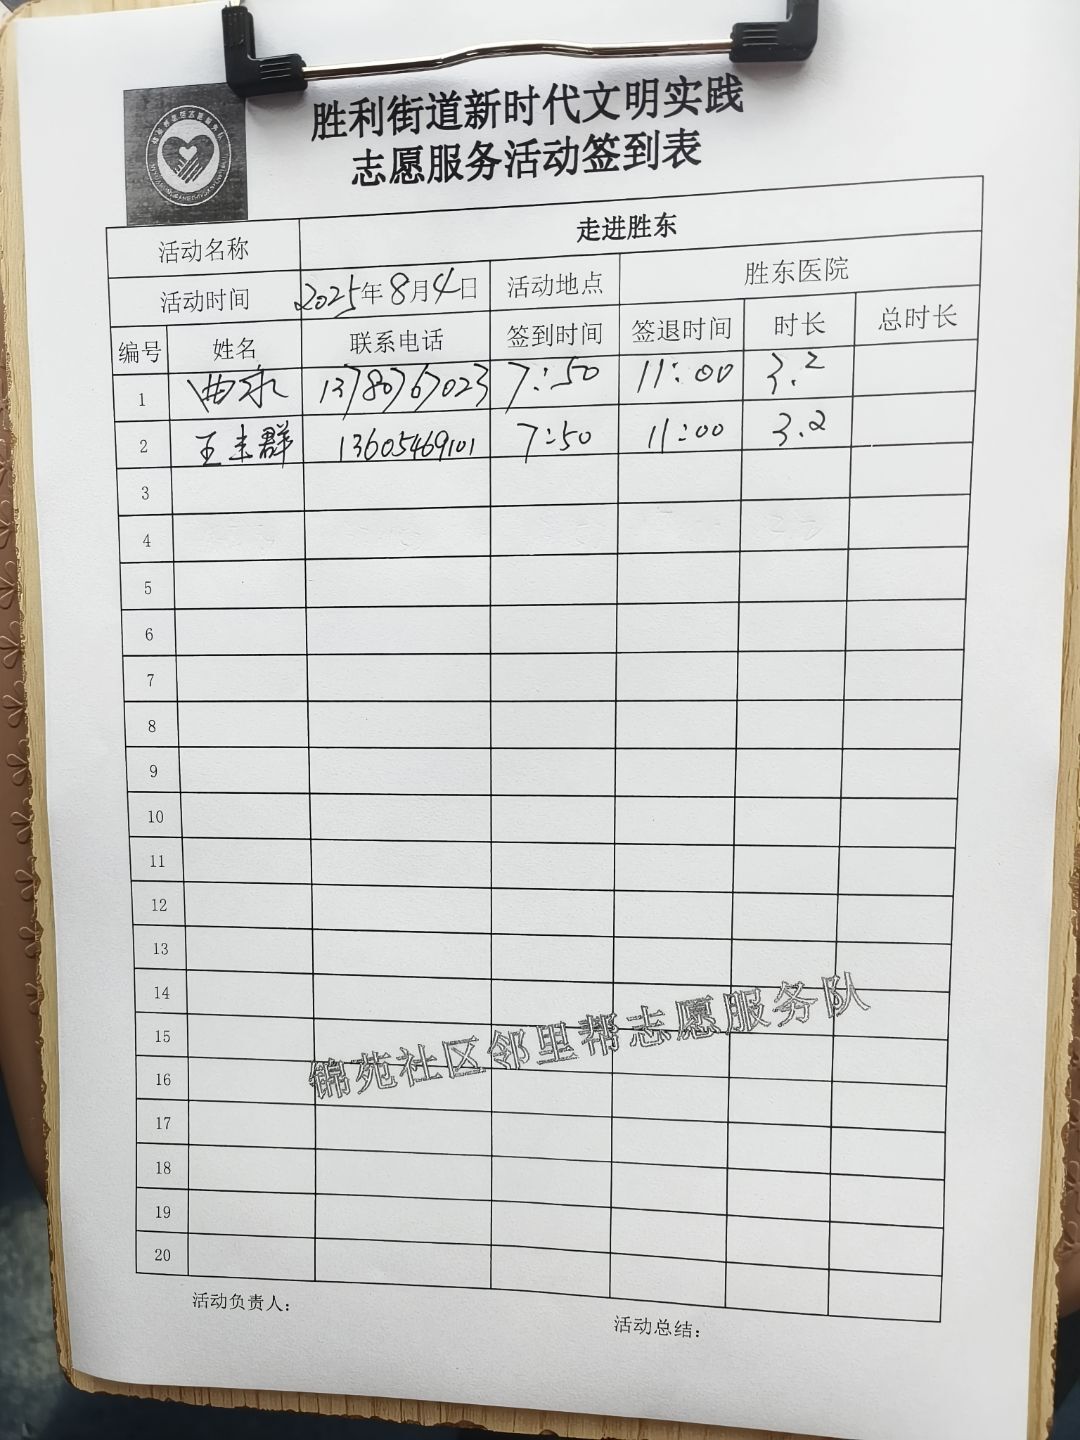 胜利街道新时代文明实践
志愿服务活动签到表
活动名称 走进胜东
活动时间 2025年8月4日 活动地点 胜东医院
编号 姓名 联系电话 签到时间 签退时间 时长 总时长
1 曲永 13780767023 7:50 11:00 3.2
2 王来群 13605469101 7:50 11:00 3.2
3
4
5
6
7
8
9
10
11
12
13
14
15
16
17
18
19
20
锦苑社区邻里帮志愿服务队
活动负责人：
活动总结：